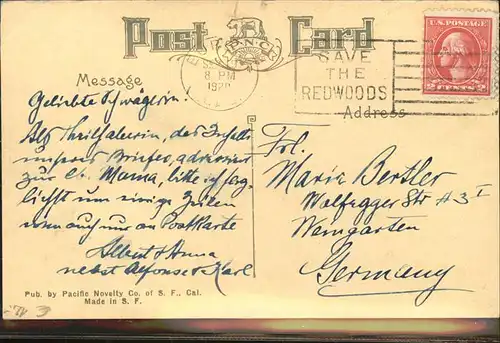 Post Card
P.N.C
8 PM
1920
SAVE
THE
REDWOODS
U.S. POSTAGE
CENTS 2
Message
Address
Geliebte Schwägerin!
Als Theilhaberin, des Inhalts
unseres Briefes, adressiert
zur lb. Mama, bitte
um einige Zeilen
wenn auch nur an Postkarte
Albert & Anna
nebst Alfonse & Karl
Frl.
Maria Bertler
Wolfegger Str # 3 I
Weingarten
Germany
Pub. by Pacific Novelty Co. of S. F., Cal.
Made in S. F.